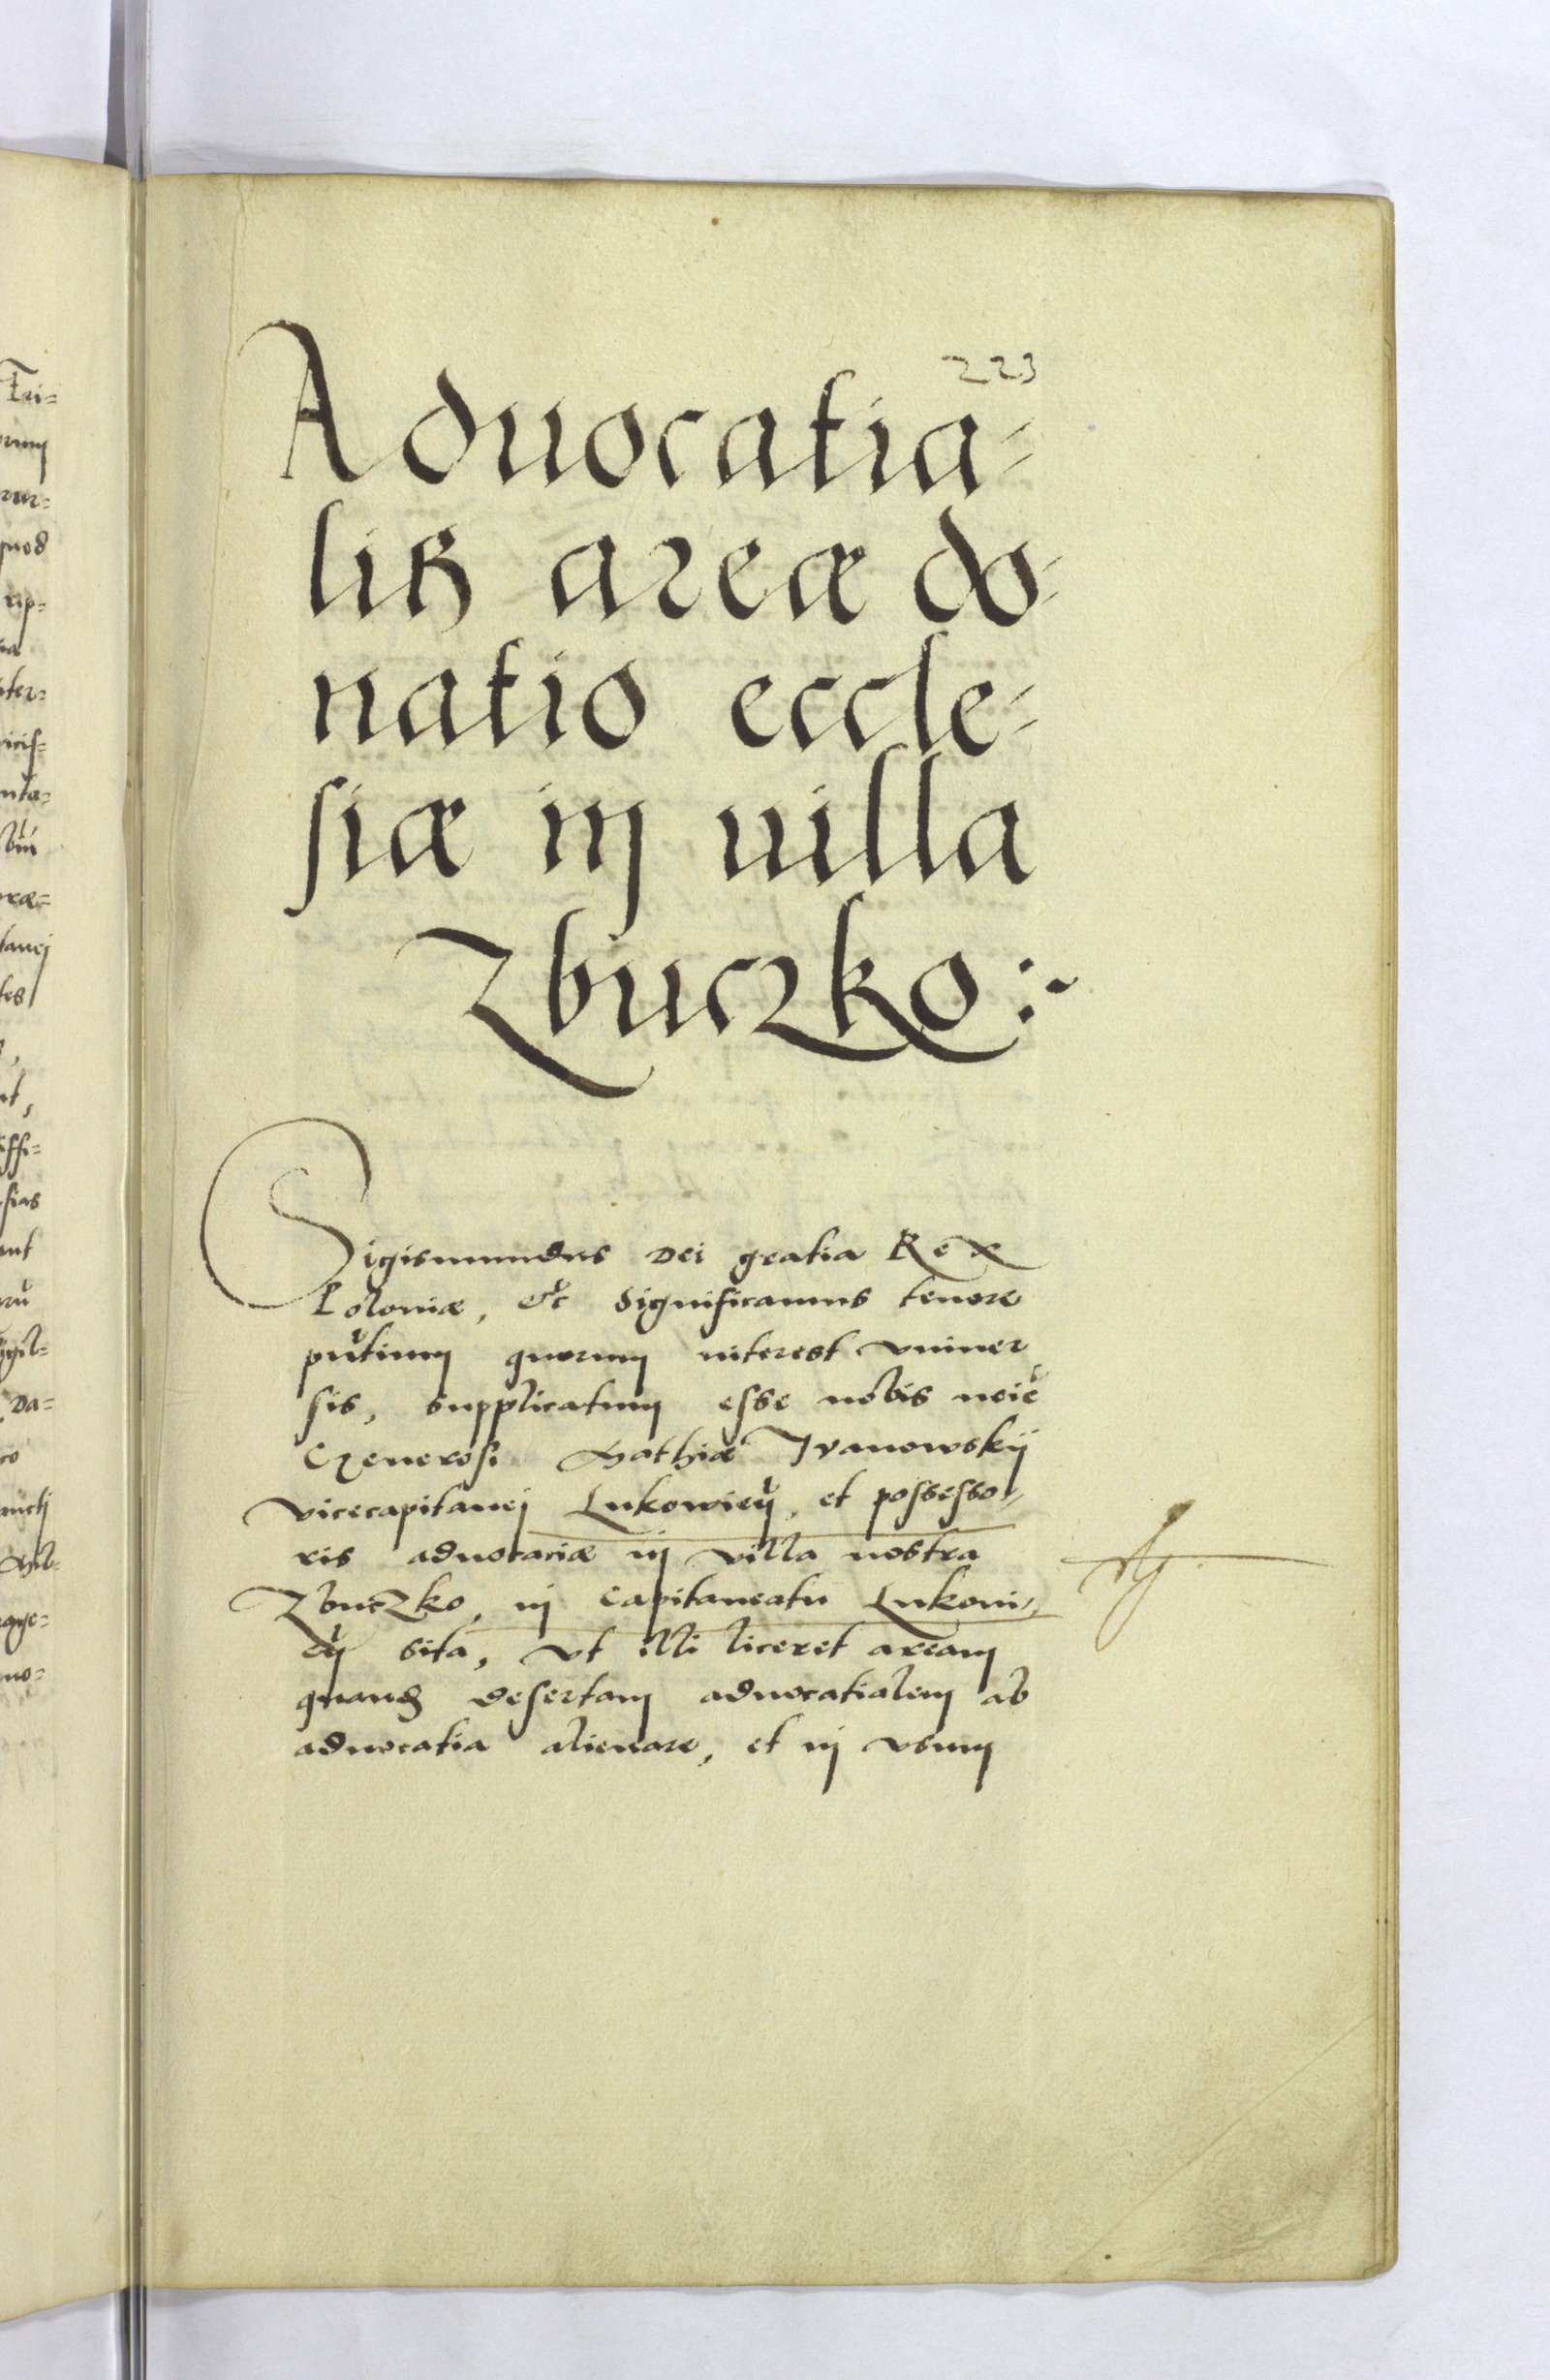 223
Aduocatia-
lis areæ do-
natio eccle-
siæ in uilla
Zbuczko:~
Sigismundus Dei gratia Rex
Poloniæ, etc Significamus tenore
pñtium quorum interest vniuer
sis, supplicatum esse nobis noiẽ
Generosi Mathiæ Ivanowskij
vicecapitanei Lukowien, et possesso-
ris aduocaciæ in villa nostra
Zbuczko, in Capitaneatu Lukoui-
en sita, vt illi liceret aream
quandã desertam aduocatialem ab
aduocatia alienare, et in vsum